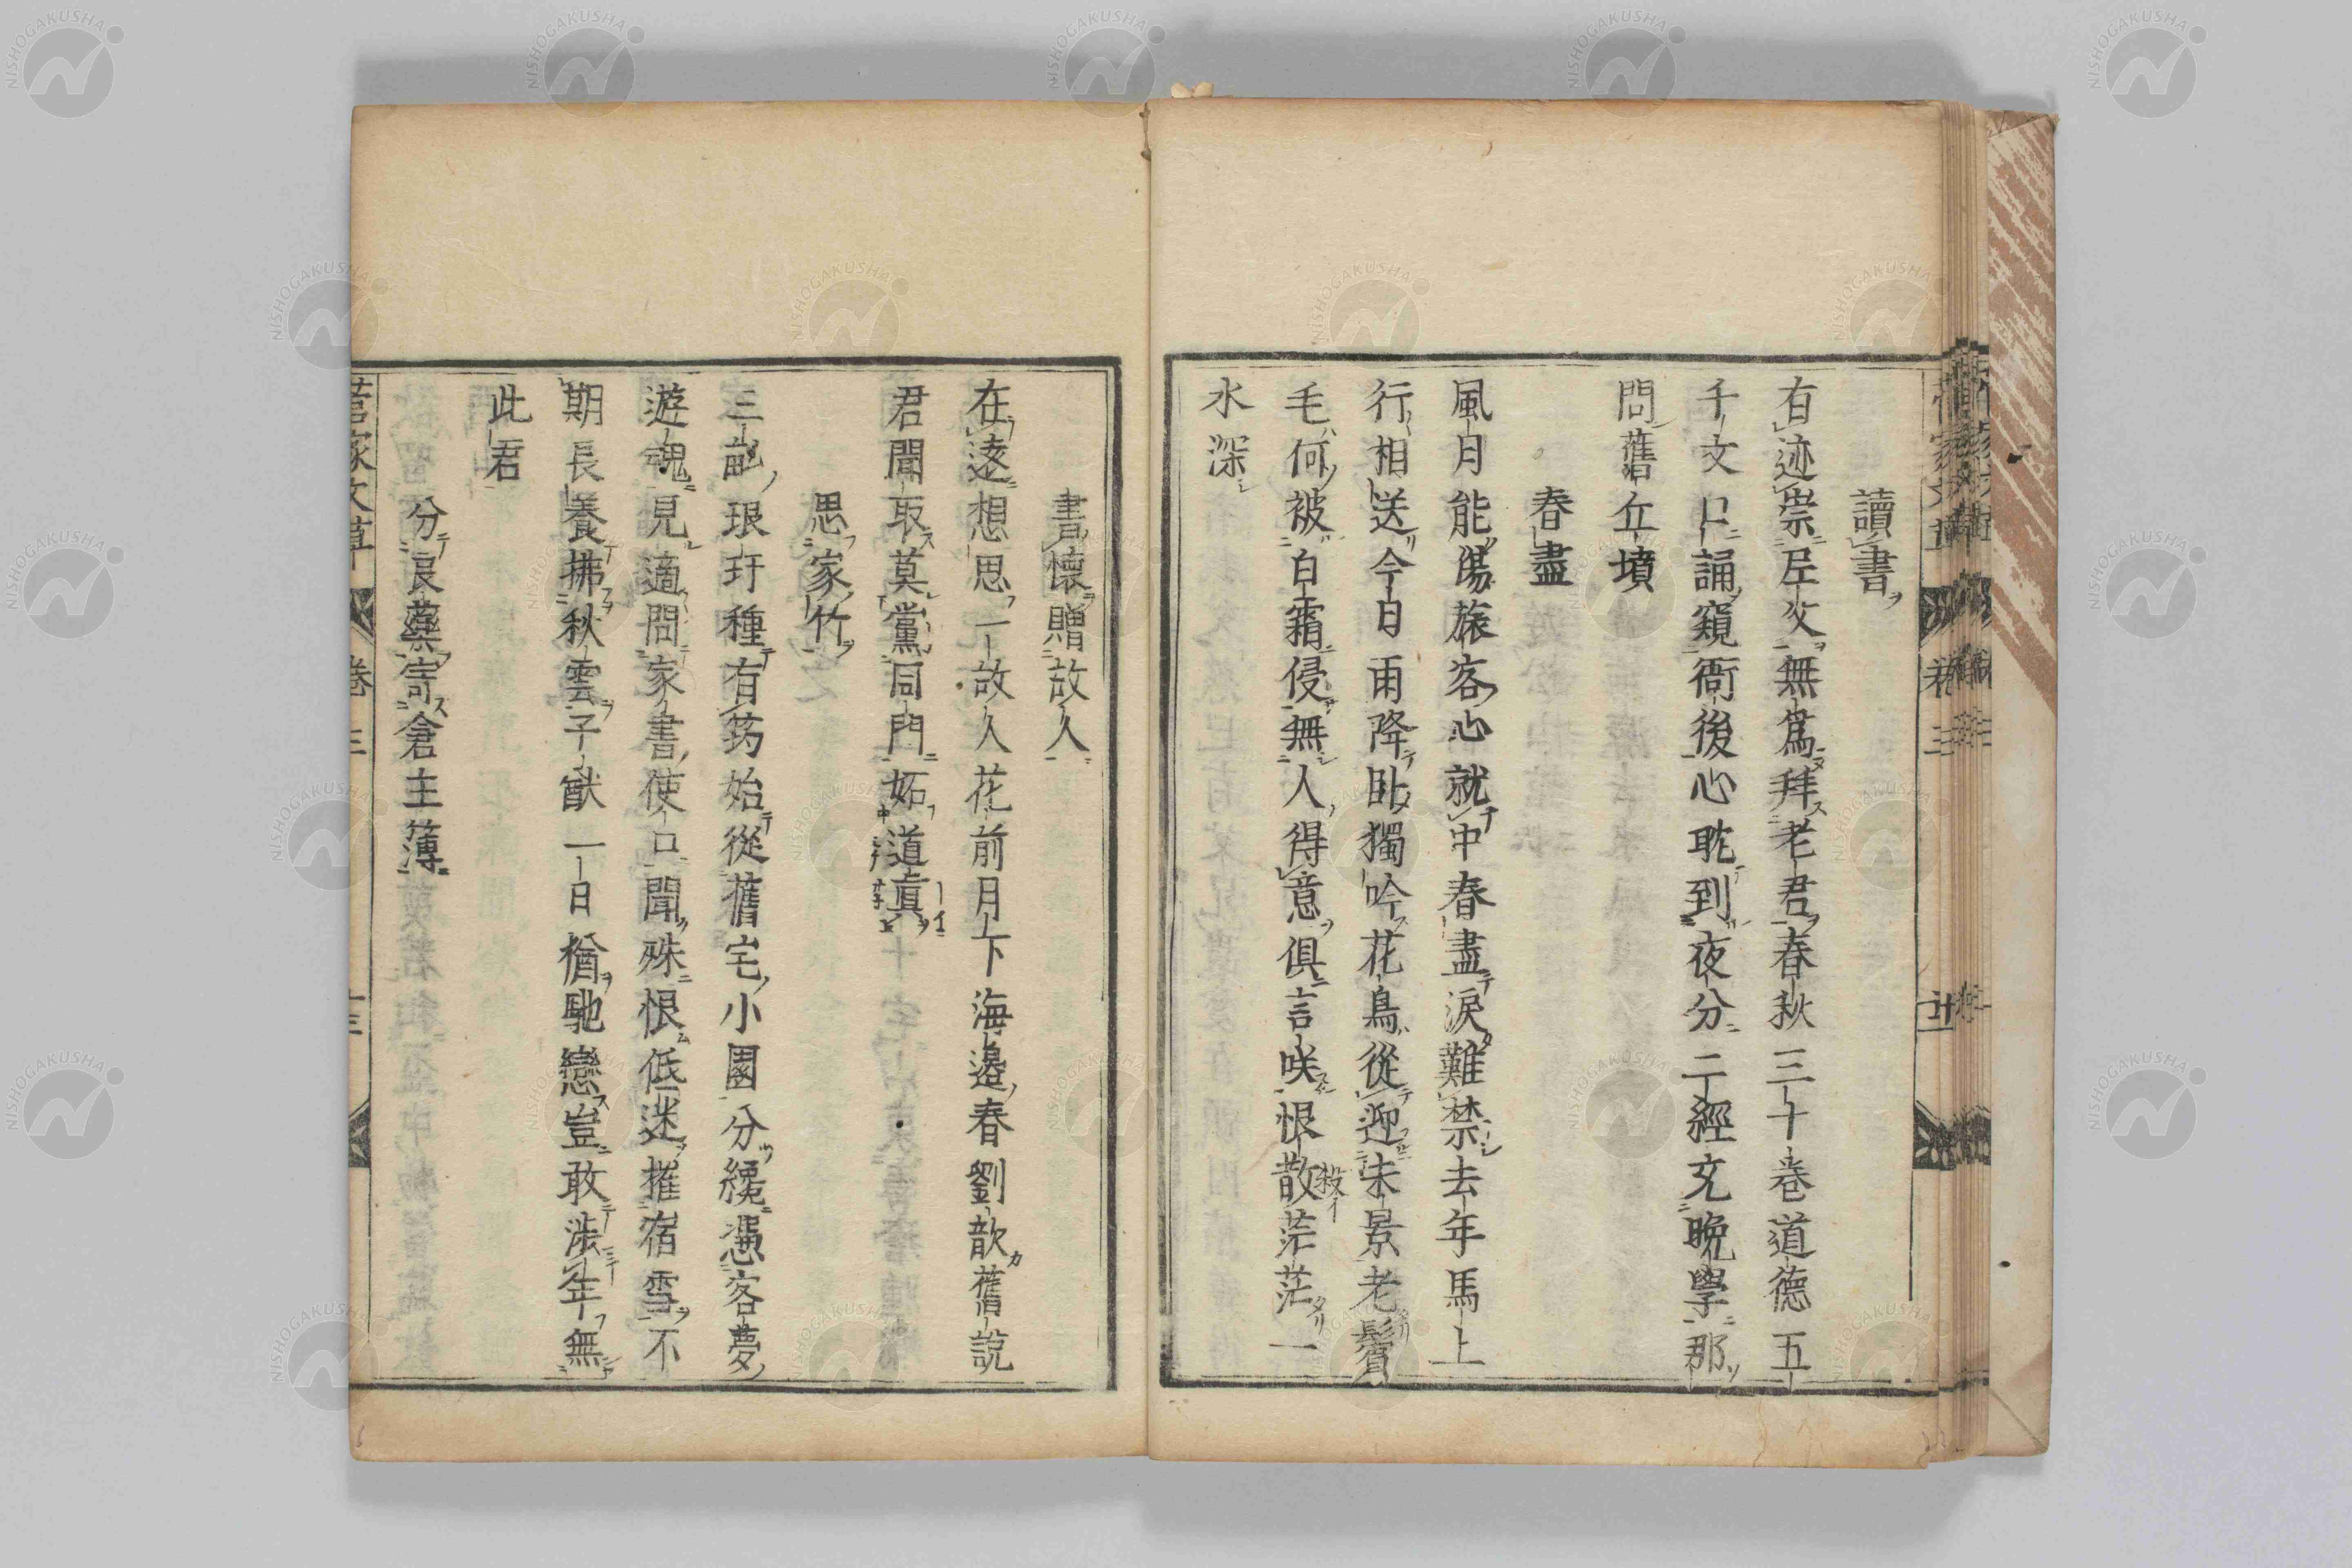 讀書
有迹崇左史無爲拜老君春秋三十巻道德五
千文口誦窺衙後心耽到夜分二經充晩學那
問舊丘墳
春盡
風月能傷旅客心就中春盡涙難禁去年馬上
行相送今日雨降臥獨吟花鳥從迎朱景老鬢
毛何被白霜侵無人得意俱言咲恨散茫茫一
水深
書懷贈故人
在遠想思一故人花前月下海邊春劉歆舊說
君聞取莫黨同門妬道眞
思家竹
三畝琅玕種有筠始從舊宅小園分纔憑客夢
遊魂見適問家書使口聞殊恨低迷摧宿雪不
期長養拂秋雲子猷一日猶馳戀豈敢渉年無
此君
分良藥寄倉主簿
菅家文草 巻三 十三
NISHOGAKUSHA